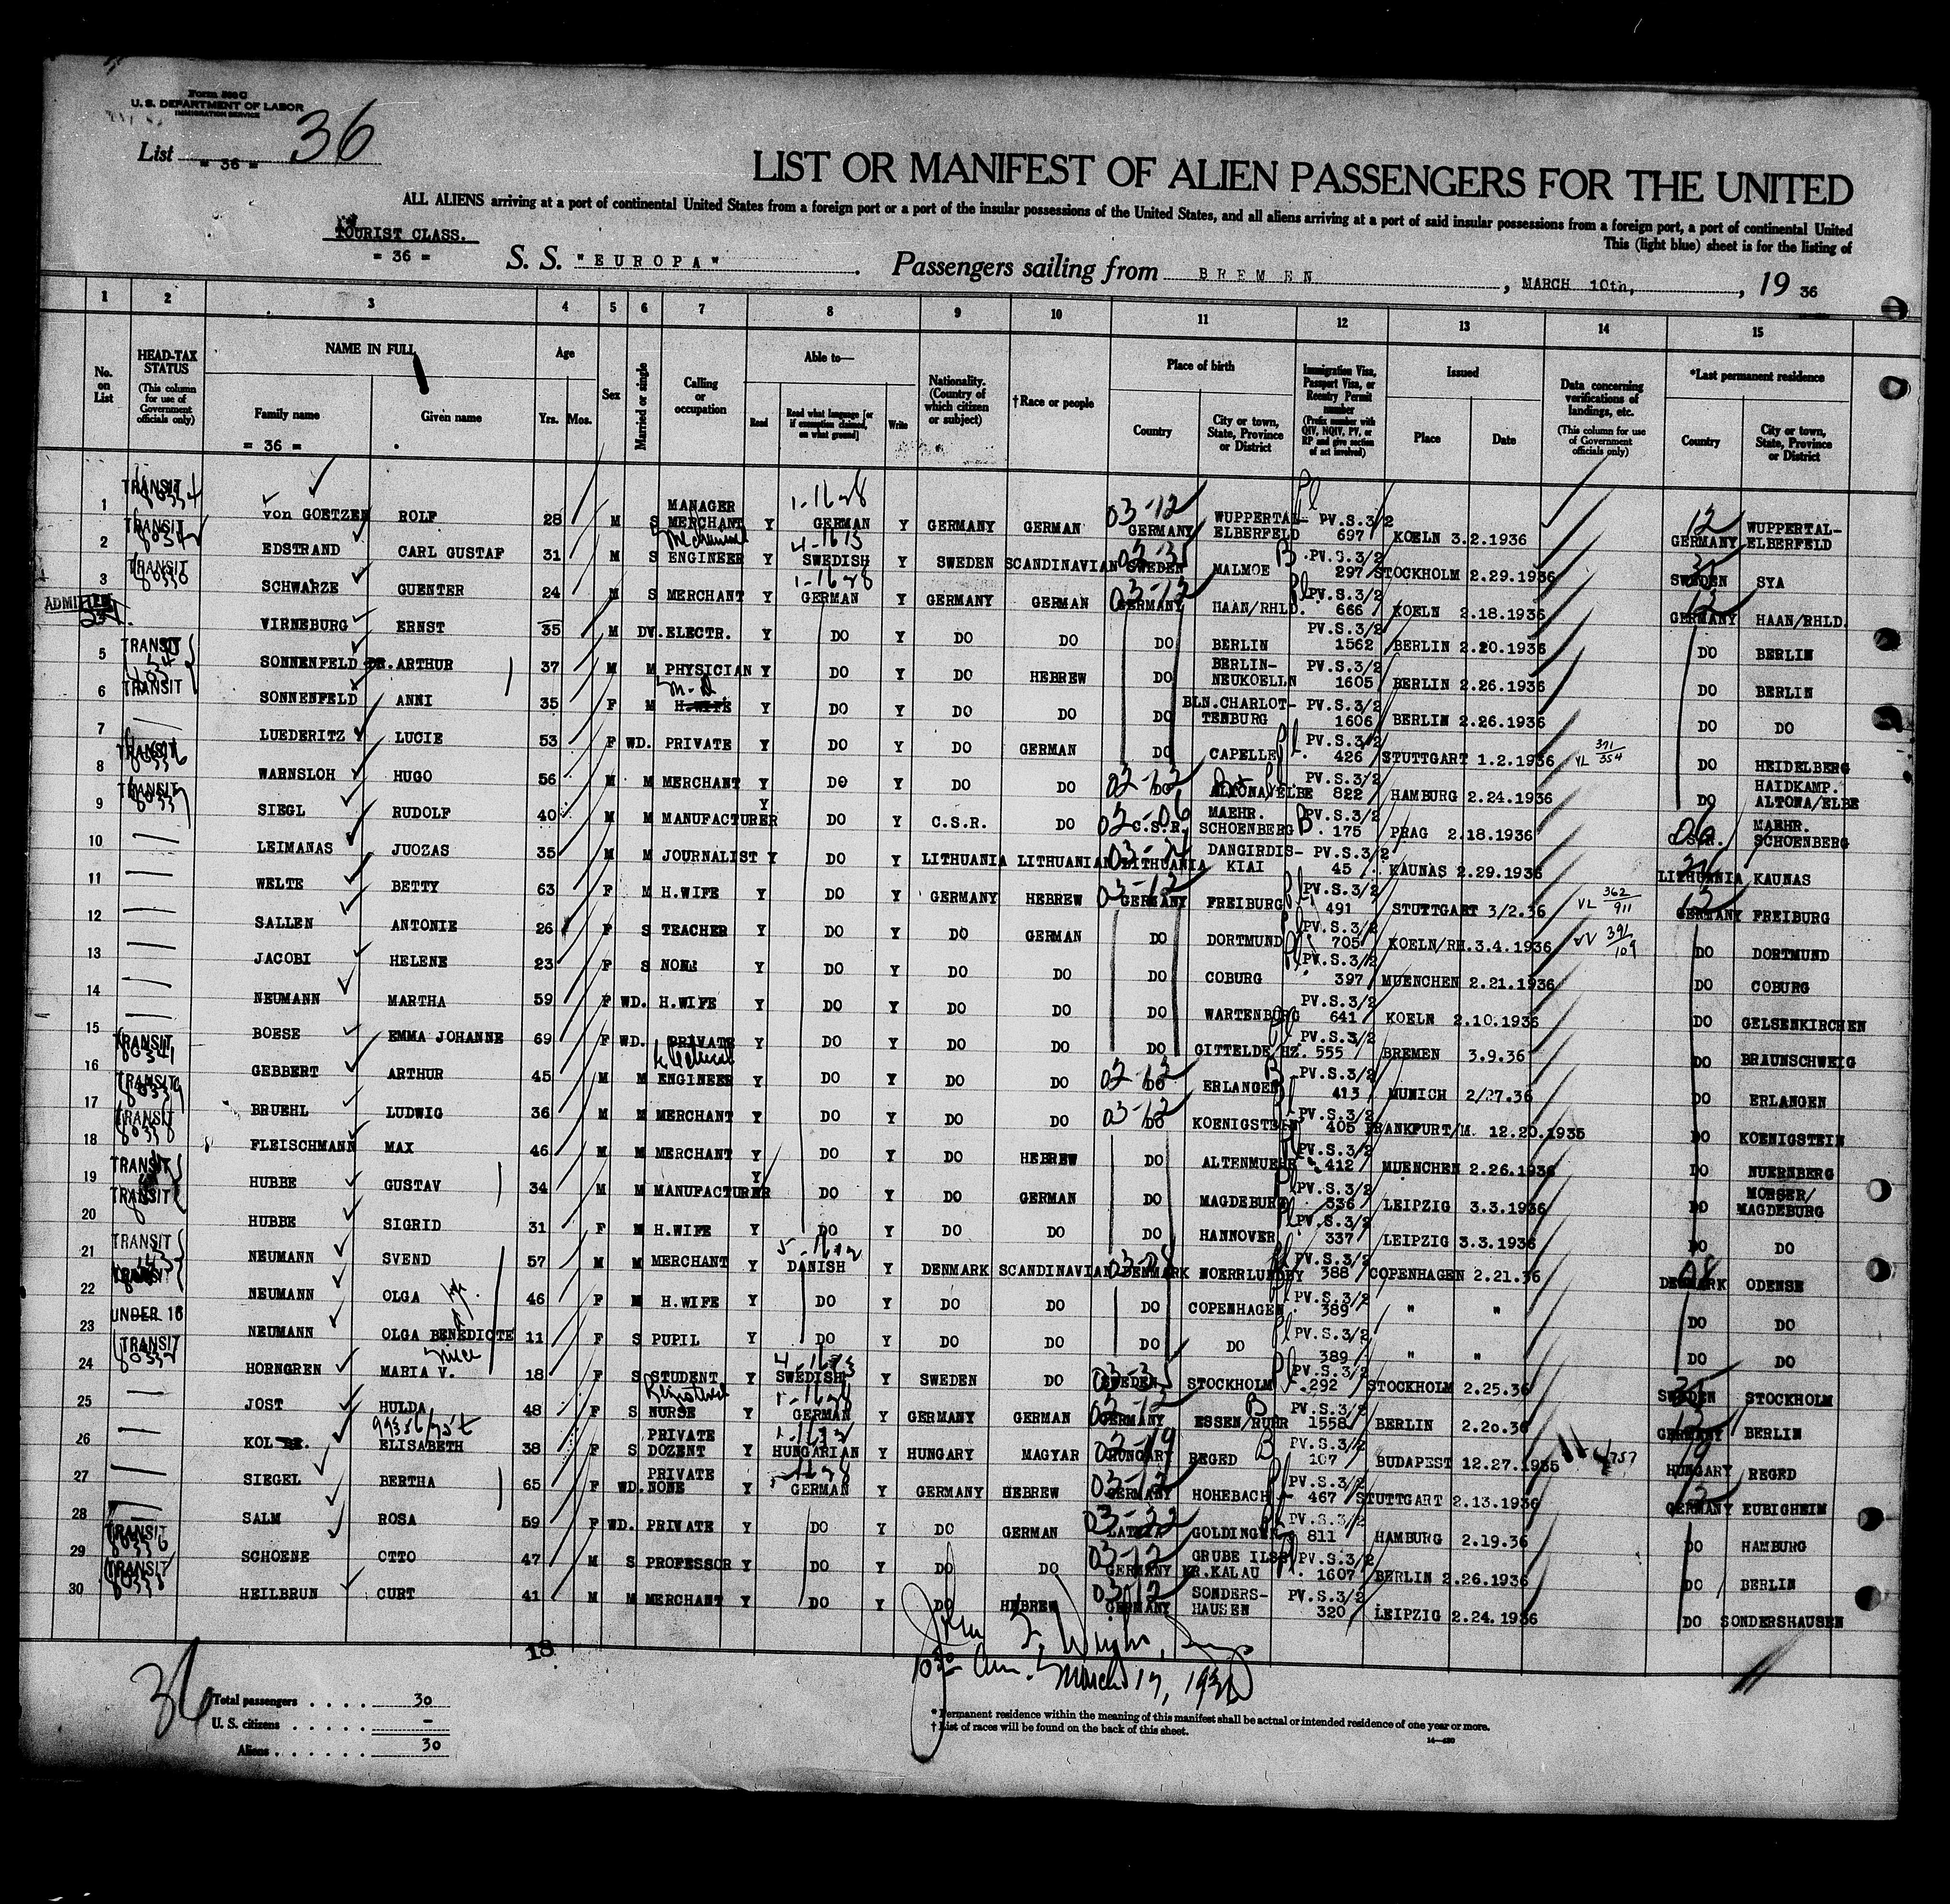 Form 500 C
U. S. DEPARTMENT OF LABOR
IMMIGRATION SERVICE
List = 36 = 36
LIST OR MANIFEST OF ALIEN PASSENGERS FOR THE UNITED
ALL ALIENS arriving at a port of continental United States from a foreign port or a port of the insular possessions of the United States, and all aliens arriving at a port of said insular possessions from a foreign port, a port of continental United
This (light blue) sheet is for the listing of
TOURIST CLASS.
= 36 =
S. S. "EUROPA" . Passengers sailing from BREMEN , MARCH 10th, , 19 36
1 2 3 4 5 6 7 8 9 10 11 12 13 14 15
No. on List
HEAD-TAX STATUS (This column for use of Government officials only)
NAME IN FULL
Family name
Given name
= 36 =
Age
Yrs. Mos.
Sex
Married or single
Calling or occupation
Able to—
Read
Read what language [or if exemption claimed, on what ground]
Write
Nationality. (Country of which citizen or subject)
†Race or people
Place of birth
Country
City or town, State, Province or District
Immigration Visa, Passport Visa, or Reentry Permit number (Prefix number with QIV, NQIV, PV, or RP and give section of act involved)
Issued
Place
Date
Data concerning verifications of landings, etc. (This column for use of Government officials only)
*Last permanent residence
Country
City or town, State, Province or District
1 TRANSIT von GOETZEN ROLF 28 M S MANAGER MERCHANT Y GERMAN Y GERMANY GERMAN 03-12 GERMANY WUPPERTAL-ELBERFELD PV.S.3/2 697 KOELN 3.2.1936 12 GERMANY WUPPERTAL-ELBERFELD
2 TRANSIT EDSTRAND CARL GUSTAF 31 M S ENGINEER Y SWEDISH Y SWEDEN SCANDINAVIAN SWEDEN MALMOE PV.S.3/2 297 STOCKHOLM 2.29.1936 SWEDEN SYA
3 TRANSIT SCHWARZE GUENTER 24 M S MERCHANT Y GERMAN Y GERMANY GERMAN 03-12 GERMANY HAAN/RHLD. PV.S.3/2 666 KOELN 2.18.1936 12 GERMANY HAAN/RHLD.
ADMITTED VIRNEBURG ERNST 35 M DV. ELECTR. Y DO Y DO DO DO BERLIN PV.S.3/2 1562 BERLIN 2.20.1936 DO BERLIN
5 TRANSIT SONNENFELD DR. ARTHUR 37 M M PHYSICIAN Y DO Y DO HEBREW DO BERLIN-NEUKOELLN PV.S.3/2 1605 BERLIN 2.26.1936 DO BERLIN
6 TRANSIT SONNENFELD ANNI 35 F M H.WIFE Y DO Y DO DO DO BLN.CHARLOTTENBURG PV.S.3/2 1606 BERLIN 2.26.1936 DO DO
7 LUEDERITZ LUCIE 53 F WD. PRIVATE Y DO Y DO GERMAN DO CAPELLE PV.S.3/2 426 STUTTGART 1.2.1936 VL 371/354 DO HEIDELBERG
8 TRANSIT WARNSLOH HUGO 56 M M MERCHANT Y DO Y DO DO 02-12 DO ALTONA/ELBE PV.S.3/2 822 HAMBURG 2.24.1936 DO HAIDKAMP. ALTONA/ELBE
9 TRANSIT SIEGL RUDOLF 40 M M MANUFACTURER Y DO Y C.S.R. DO 02-06 C.S.R. MAEHR. SCHOENBERG PV.S.3/2 175 PRAG 2.18.1936 06 C.S.R. MAEHR. SCHOENBERG
10 LEIMANAS JUOZAS 35 M M JOURNALIST Y DO Y LITHUANIA LITHUANIAN LITHUANIA DANGIRDISKIAI PV.S.3/2 45 KAUNAS 2.29.1936 LITHUANIA KAUNAS
11 WELTE BETTY 63 F M H.WIFE Y DO Y GERMANY HEBREW 03-12 GERMANY FREIBURG PV.S.3/2 491 STUTTGART 3/2.36 VL 362/911 12 GERMANY FREIBURG
12 SALLEN ANTONIE 26 F S TEACHER Y DO Y DO GERMAN DO DORTMUND PV.S.3/2 705 KOELN/RH. 3.4.1936 391/109 DO DORTMUND
13 JACOBI HELENE 23 F S NONE Y DO Y DO DO DO COBURG PV.S.3/2 397 MUENCHEN 2.21.1936 DO COBURG
14 NEUMANN MARTHA 59 F WD. H.WIFE Y DO Y DO DO DO WARTENBURG PV.S.3/2 641 KOELN 2.10.1936 DO GELSENKIRCHEN
15 BOESE EMMA JOHANNE 69 F WD. PRIVATE Y DO Y DO DO DO GITTELDE/HZ. PV.S.3/2 555 BREMEN 3.9.36 DO BRAUNSCHWEIG
16 TRANSIT GEBBERT ARTHUR 45 M M ENGINEER Y DO Y DO DO 02-12 DO ERLANGEN PV.S.3/2 413 MUNICH 2/27.36 DO ERLANGEN
17 TRANSIT BRUEHL LUDWIG 36 M M MERCHANT Y DO Y DO DO 03-12 DO KOENIGSTEIN PV.S.3/2 405 FRANKFURT/M. 12.20.1935 DO KOENIGSTEIN
18 TRANSIT FLEISCHMANN MAX 46 M M MERCHANT Y DO Y DO HEBREW DO ALTENMUEHR PV.S.3/2 412 MUENCHEN 2.26.1936 DO NUERNBERG
19 TRANSIT HUBBE GUSTAV 34 M M MANUFACTURER Y DO Y DO GERMAN DO MAGDEBURG PV.S.3/2 336 LEIPZIG 3.3.1936 DO MOESER/MAGDEBURG
20 TRANSIT HUBBE SIGRID 31 F M H.WIFE Y DO Y DO DO DO HANNOVER PV.S.3/2 337 LEIPZIG 3.3.1936 DO DO
21 TRANSIT NEUMANN SVEND 57 M M MERCHANT Y DANISH Y DENMARK SCANDINAVIAN DENMARK NOERRLUNDBY PV.S.3/2 388 COPENHAGEN 2.21.36 DENMARK ODENSE
22 TRANSIT NEUMANN OLGA 46 F M H.WIFE Y DO Y DO DO DO COPENHAGEN PV.S.3/2 389 " " DO DO
23 UNDER 16 NEUMANN OLGA BENEDICTE 11 F S PUPIL Y DO Y DO DO DO DO PV.S.3/2 389 " " DO DO
24 TRANSIT HORNGREN MARIA V. niece 18 F S STUDENT Y SWEDISH Y SWEDEN DO SWEDEN STOCKHOLM PV.S.3/2 292 STOCKHOLM 2.25.36 SWEDEN STOCKHOLM
25 JOST HULDA 48 F S NURSE Y GERMAN Y GERMANY GERMAN GERMANY ESSEN/RUHR PV.S.3/2 1558 BERLIN 2.20.36 GERMANY BERLIN
26 KOL ELISABETH 38 F S PRIVATE DOZENT Y HUNGARIAN Y HUNGARY MAGYAR HUNGARY REGED PV.S.3/2 107 BUDAPEST 12.27.1935 HUNGARY REGED
27 SIEGEL BERTHA 65 F WD. PRIVATE NONE Y GERMAN Y GERMANY HEBREW 03-12 GERMANY HOHEBACH PV.S.3/2 467 STUTTGART 2.13.1936 GERMANY EUBIGHEIM
28 SALM ROSA 59 F WD. PRIVATE Y DO Y DO GERMAN 03-22 LATVIA GOLDINGEN PV.S.3/2 811 HAMBURG 2.19.36 DO HAMBURG
29 TRANSIT SCHOENE OTTO 47 M S PROFESSOR Y DO Y DO DO 03-12 GERMANY GRUBE ILSE KR.KALAU PV.S.3/2 1607 BERLIN 2.26.1936 DO BERLIN
30 TRANSIT HEILBRUN CURT 41 M M MERCHANT Y DO Y DO HEBREW 03-12 GERMANY SONDERSHAUSEN PV.S.3/2 320 LEIPZIG 2.24.1936 DO SONDERSHAUSEN
18
March 17, 1936
36
Total passengers . . . . 30
U. S. citizens . . . . . –
Aliens . . . . . . 30
* Permanent residence within the meaning of this manifest shall be actual or intended residence of one year or more.
† List of races will be found on the back of this sheet.
14—430